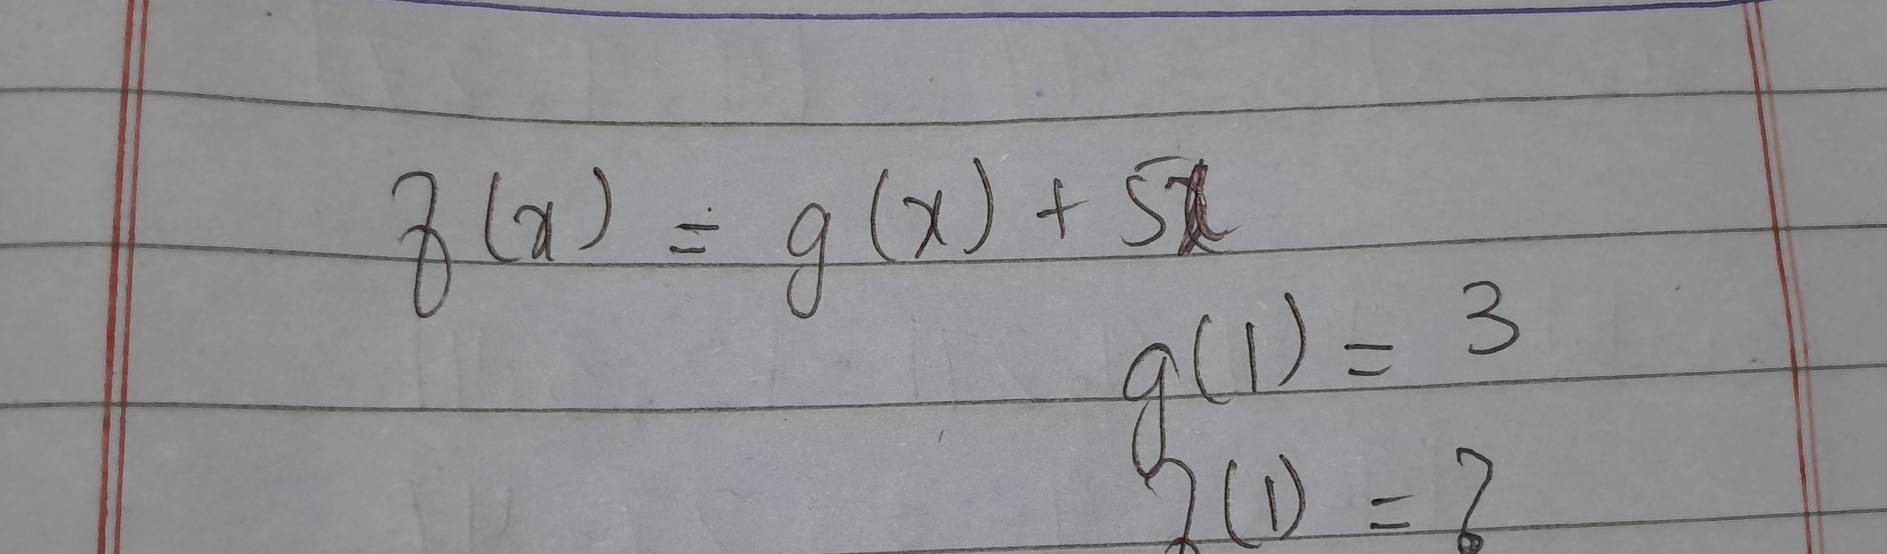 f(x) = g(x) + 5x
g(1) = 3
f(1) = ?